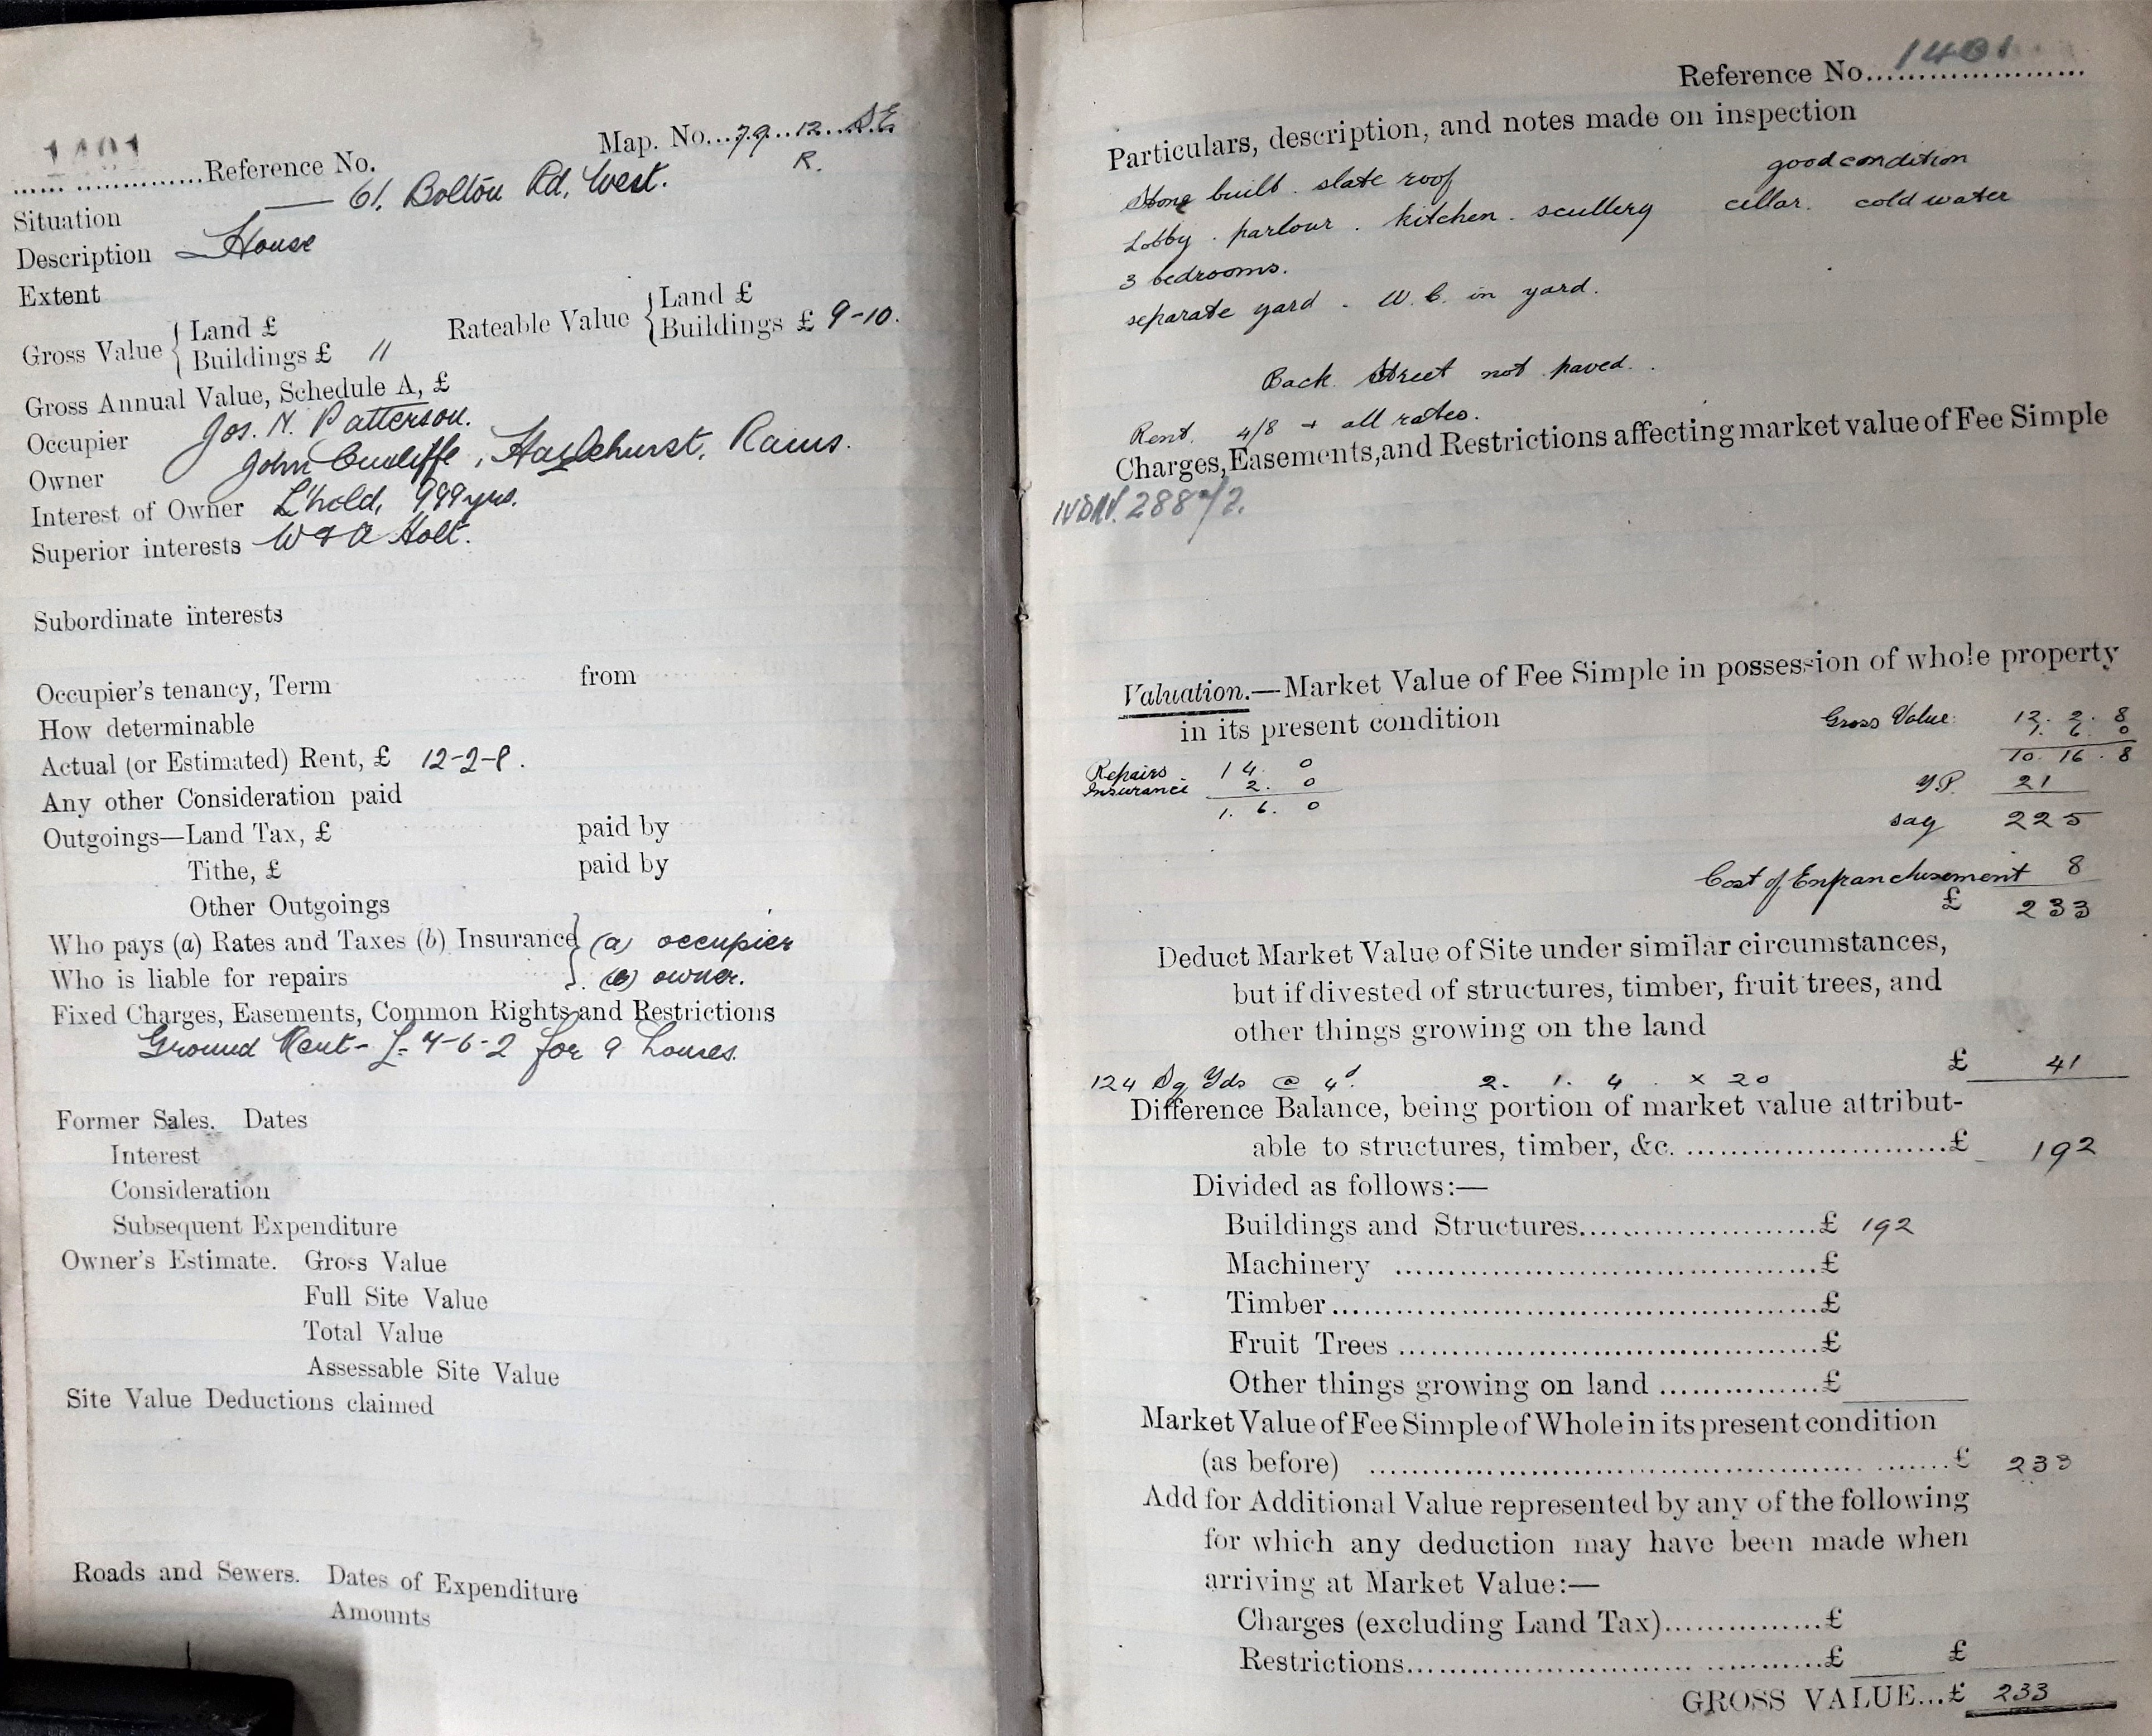 1401
Reference No.
Map. No. 79 12 S.E.
R.
Situation — 61, Bolton Rd, West.
Description House
Extent
Gross Value { Land £
Buildings £ 11
Rateable Value { Land £
Buildings £ 9-10.
Gross Annual Value, Schedule A, £
Occupier Jos. N. Patterson.
Owner John Cunliffe, Hazlehurst, Rams.
Interest of Owner L'hold, 999 yrs.
Superior interests W & A Holt.
Subordinate interests
Occupier's tenancy, Term from
How determinable
Actual (or Estimated) Rent, £ 12-2-8.
Any other Consideration paid
Outgoings—Land Tax, £ paid by
Tithe, £ paid by
Other Outgoings
Who pays (a) Rates and Taxes (b) Insurance } (a) occupier
Who is liable for repairs } (b) owner.
Fixed Charges, Easements, Common Rights and Restrictions
Ground Rent- £-4-6-2 for 9 houses.
Former Sales. Dates
Interest
Consideration
Subsequent Expenditure
Owner's Estimate. Gross Value
Full Site Value
Total Value
Assessable Site Value
Site Value Deductions claimed
Roads and Sewers. Dates of Expenditure
Amounts
Reference No. 1401
Particulars, description, and notes made on inspection
Stone built. slate roof good condition
Lobby. parlour. kitchen. scullery cellar. cold water
3 bedrooms.
separate yard - W.C. in yard.
Back Street not paved.
Rent. 4/8 + all rates.
Charges, Easements, and Restrictions affecting market value of Fee Simple
288
Valuation.—Market Value of Fee Simple in possession of whole property
in its present condition
Gross Value: 12. 2. 8
1. 6. 0
10. 16. 8
Repairs 14. 0
Insurance 2. 0
1. 6. 0
Y.P. 21
say 225
Cost of Enfranchisement 8
£ 233
Deduct Market Value of Site under similar circumstances,
but if divested of structures, timber, fruit trees, and
other things growing on the land
124 Sq Yds @ 4d. 2. 1. 4. x 20 £ 41
Difference Balance, being portion of market value attribut-
able to structures, timber, &c. £ 192
Divided as follows:—
Buildings and Structures £ 192
Machinery £
Timber £
Fruit Trees £
Other things growing on land £
Market Value of Fee Simple of Whole in its present condition
(as before) £ 233
Add for Additional Value represented by any of the following
for which any deduction may have been made when
arriving at Market Value:—
Charges (excluding Land Tax) £
Restrictions £ £
GROSS VALUE...£ 233